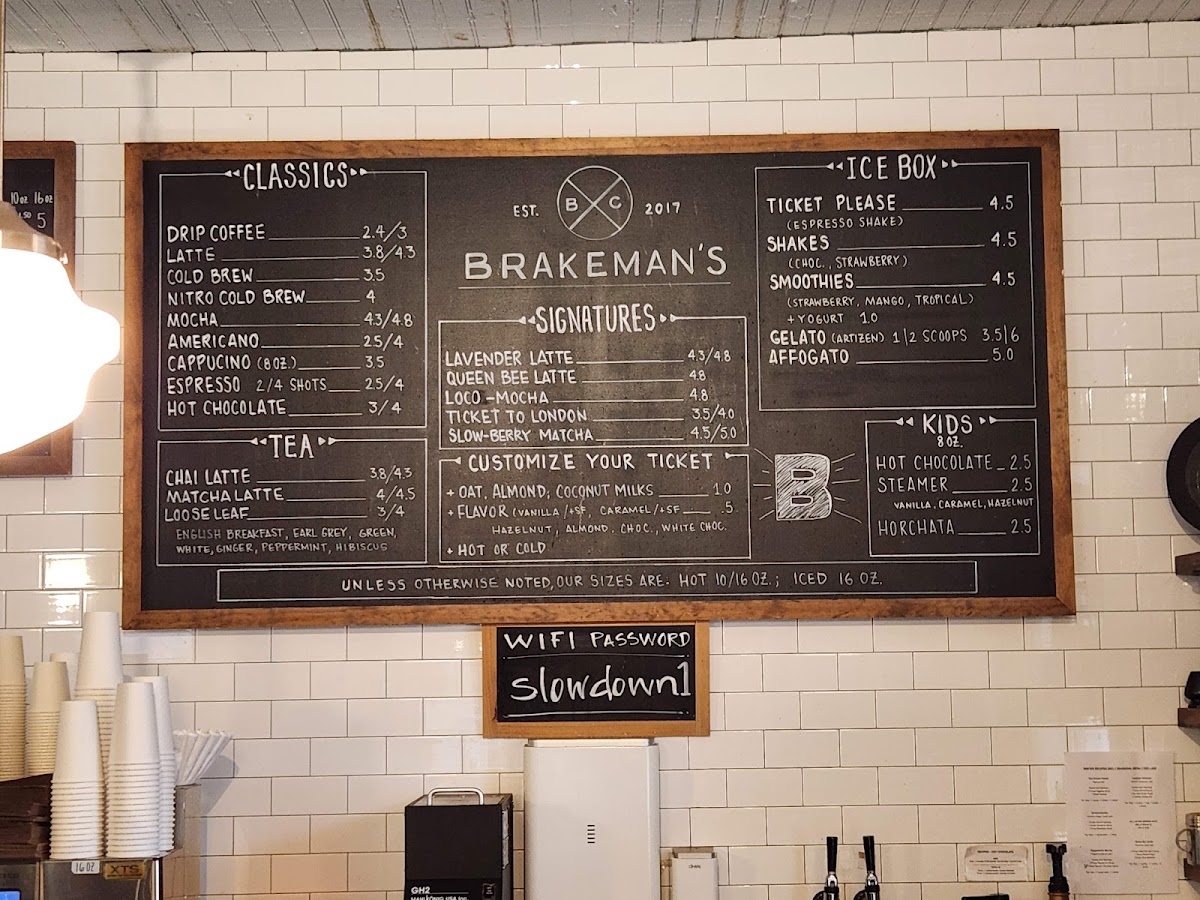 10oz 16oz
5
CLASSICS
DRIP COFFEE 2.4/3
LATTE 3.8/4.3
COLD BREW 3.5
NITRO COLD BREW 4
MOCHA 4.3/4.8
AMERICANO 2.5/4
CAPPUCINO (8 OZ.) 3.5
ESPRESSO 2/4 SHOTS 2.5/4
HOT CHOCOLATE 3/4
TEA
CHAI LATTE 3.8/4.3
MATCHA LATTE 4/4.5
LOOSE LEAF 3/4
ENGLISH BREAKFAST, EARL GREY, GREEN,
WHITE, GINGER, PEPPERMINT, HIBISCUS
EST. B C 2017
BRAKEMAN'S
SIGNATURES
LAVENDER LATTE 4.3/4.8
QUEEN BEE LATTE 4.8
LOCO-MOCHA 4.8
TICKET TO LONDON 3.5/4.0
SLOW-BERRY MATCHA 4.5/5.0
CUSTOMIZE YOUR TICKET
+ OAT, ALMOND, COCONUT MILKS 1.0
+ FLAVOR (VANILLA/+SF, CARAMEL/+SF .5
HAZELNUT, ALMOND, CHOC., WHITE CHOC.
+ HOT OR COLD
ICE BOX
TICKET PLEASE 4.5
(ESPRESSO SHAKE)
SHAKES 4.5
(CHOC., STRAWBERRY)
SMOOTHIES 4.5
(STRAWBERRY, MANGO, TROPICAL)
+ YOGURT 1.0
GELATO (ARTIZEN) 1|2 SCOOPS 3.5|6
AFFOGATO 5.0
B
KIDS
8 OZ.
HOT CHOCOLATE 2.5
STEAMER 2.5
VANILLA, CARAMEL, HAZELNUT
HORCHATA 2.5
UNLESS OTHERWISE NOTED, OUR SIZES ARE: HOT 10/16 OZ.; ICED 16 OZ.
WIFI PASSWORD
slowdown1
16 OZ
XTS
GH2